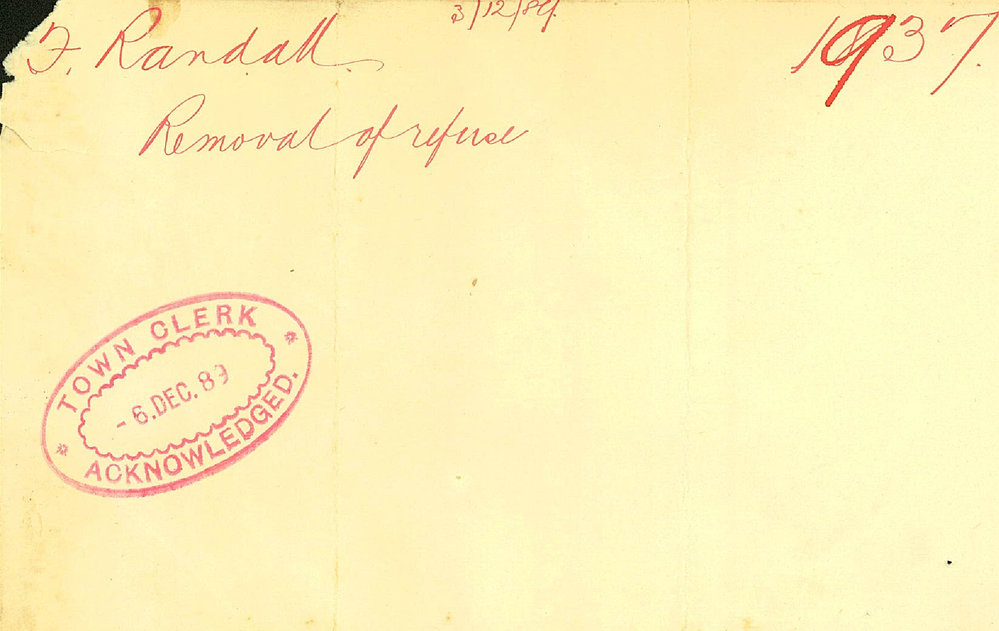 3/12/89.
F. Randall
1937.
Removal of refuse
TOWN CLERK
- 6. DEC. 89
ACKNOWLEDGED.